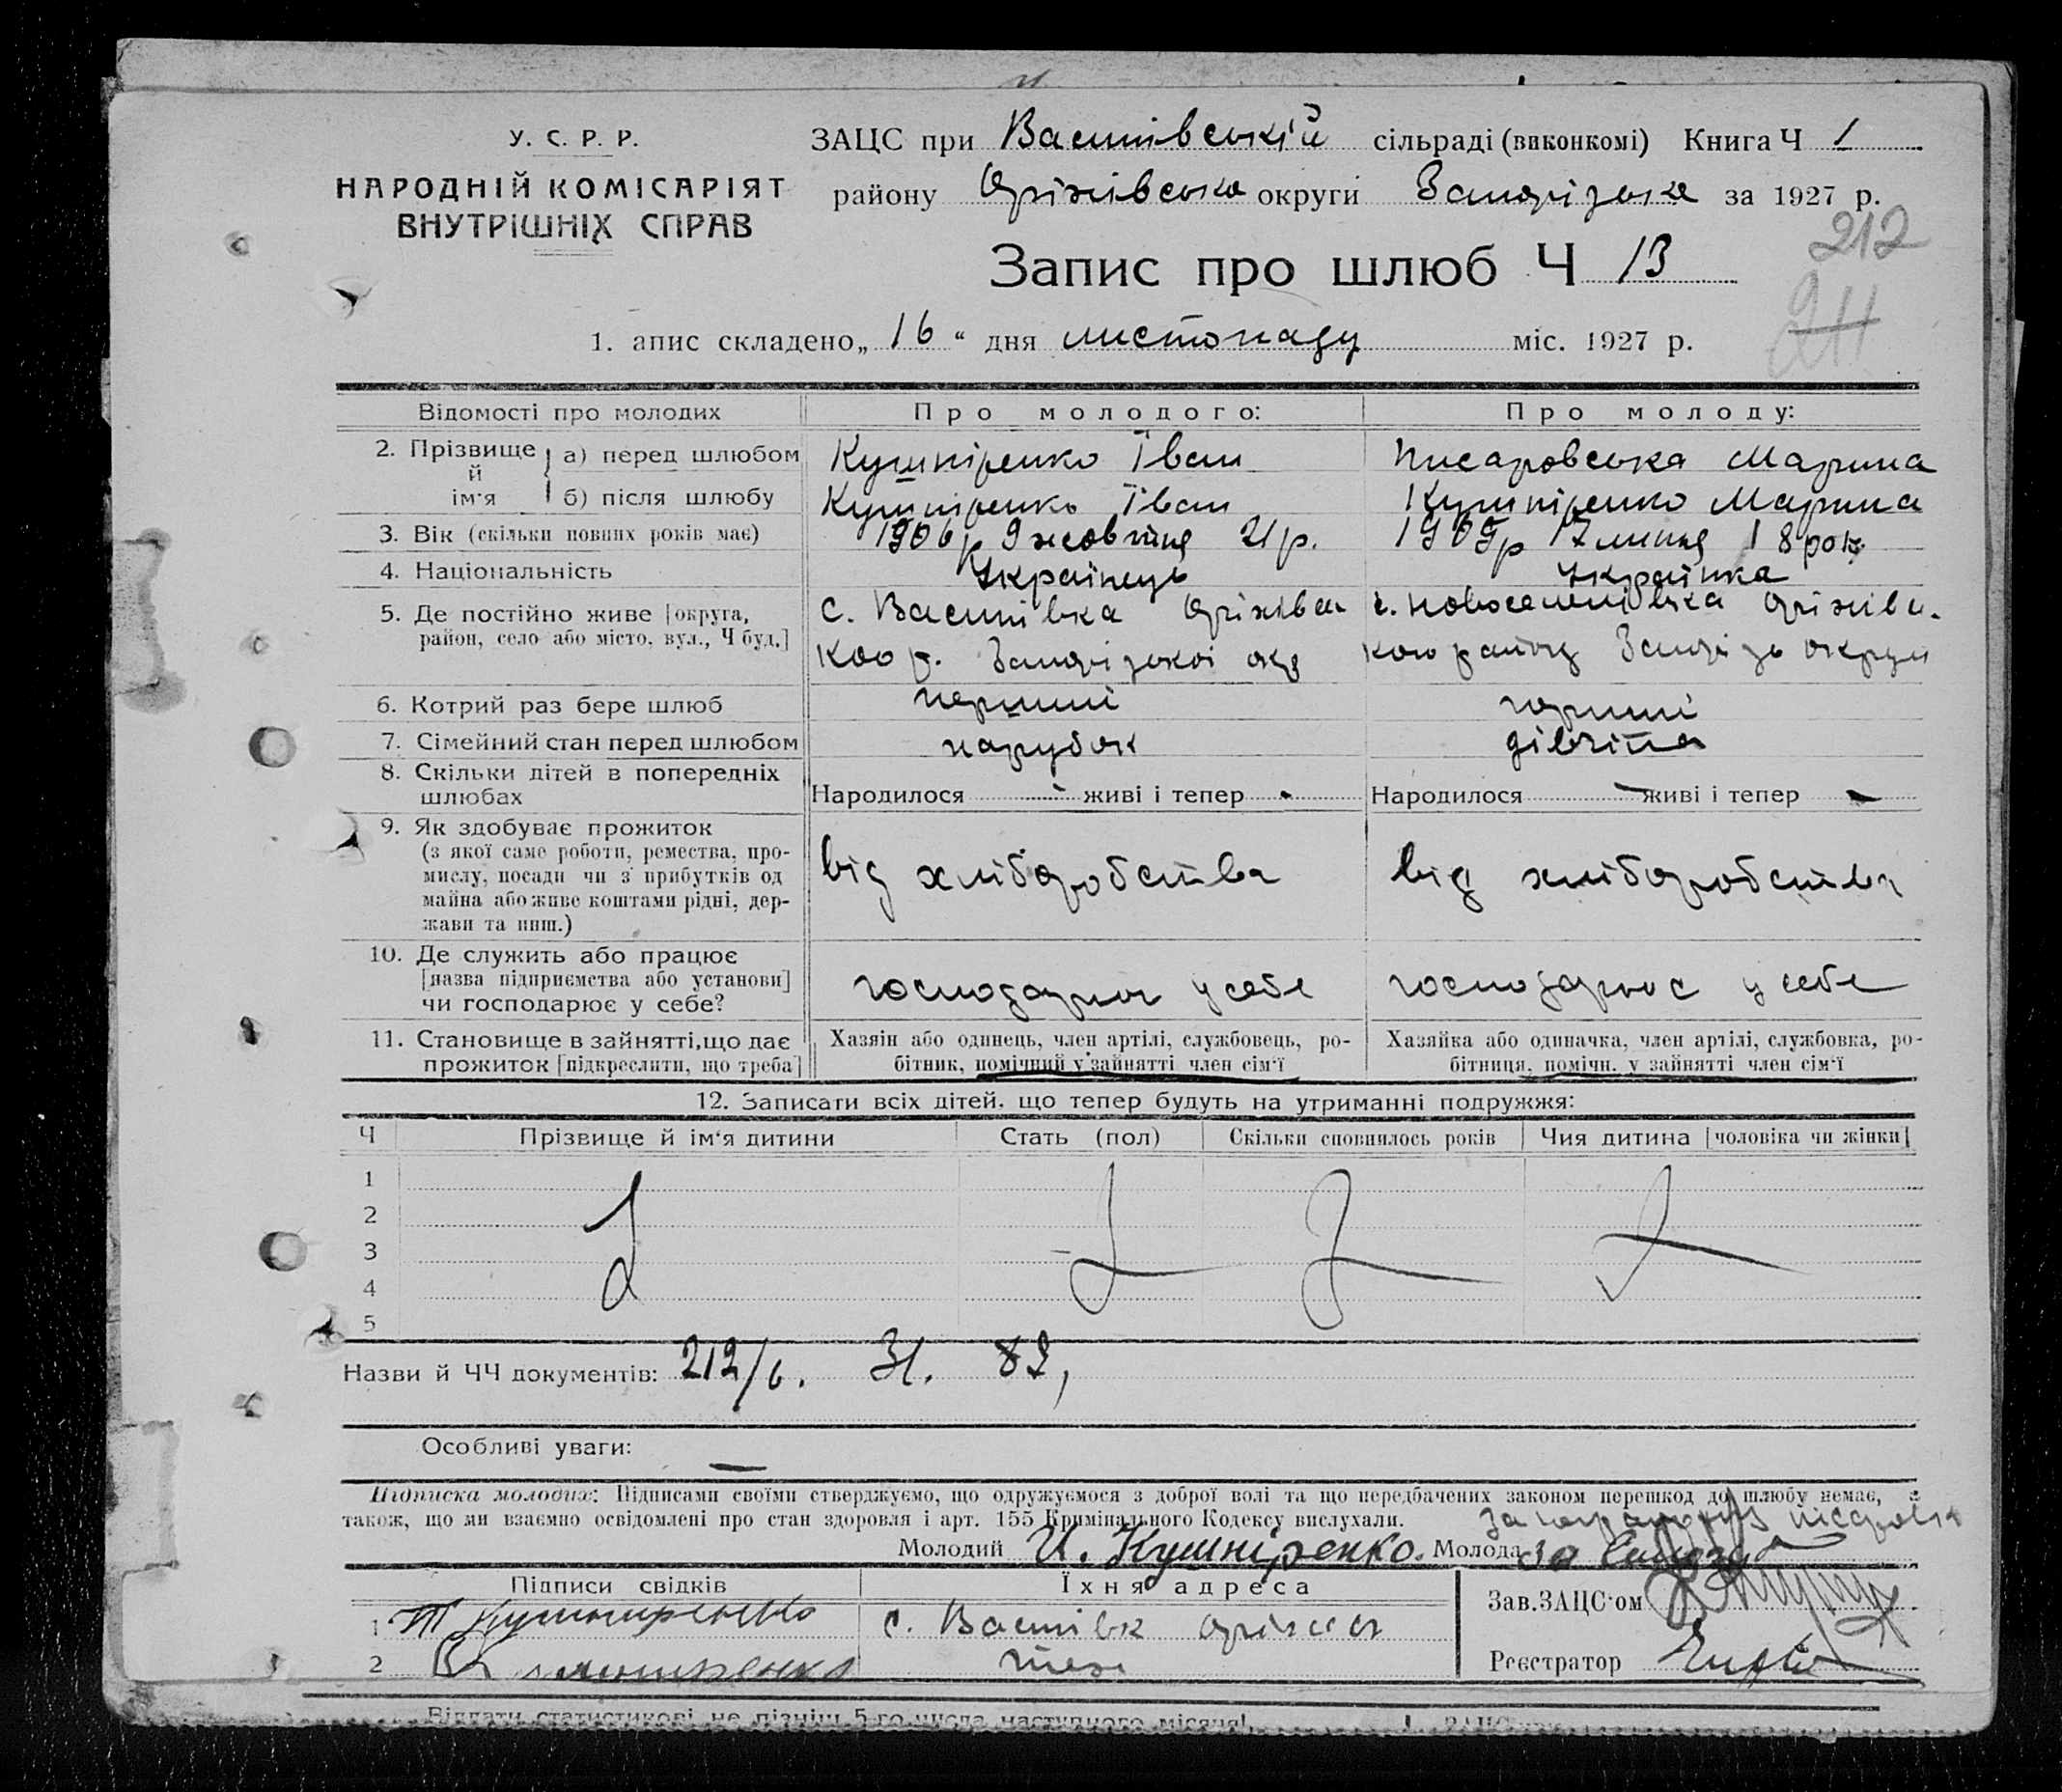 У. С. Р. Р.
НАРОДНІЙ КОМІСАРІЯТ
ВНУТРІШНІХ СПРАВ
ЗАЦС при Васинівській сільраді (виконкомі) Книга Ч 1
району Оріхівсько округи Запорізька за 1927 р.
212
211
Запис про шлюб Ч 13
1. апис складено „ 16 “ дня листопаду міс. 1927 р.
Відомості про молодих Про молодого: Про молоду:
2. Прізвище й ім'я а) перед шлюбом Кушніренко Іван Писаровська Марина
б) після шлюбу Кушніренко Іван Кушніренко Марина
3. Вік (скільки повних років має) 1906р 9 жовтня 21р. 1909р 17 липня 18 рок
4. Національність Українець Українка
5. Де постійно живе [округа, район, село або місто, вул., Ч буд.] с. Васинівка с. Новоселенівка
6. Котрий раз бере шлюб перший перший
7. Сімейний стан перед шлюбом парубок дівчина
8. Скільки дітей в попередніх шлюбах Народилося - живі і тепер - Народилося - живі і тепер -
9. Як здобуває прожиток
(з якої саме роботи, ремества, промислу, посади чи з прибутків од майна або живе коштами рідні, держави та инш.)
від хліборобства від хліборобства
10. Де служить або працює
[назва підприємства або установи]
чи господарює у себе?
господарює у себе господарює у себе
11. Становище в зайнятті, що дає
прожиток [підкреслити, що треба]
Хазяїн або одинець, член артілі, службовець, робітник, помічний у зайнятті член сім'ї
Хазяйка або одиначка, член артілі, службовка, робітниця, помічн. у зайнятті член сім'ї
12. Записати всіх дітей, що тепер будуть на утриманні подружжя:
Ч Прізвище й ім'я дитини Стать (пол) Скільки сповнилось років Чия дитина [чоловіка чи жінки]
1
2
3
4
5
Назви й ЧЧ документів: 212/6. 31. 82,
Особливі уваги: —
Підписка молодих: Підписами своїми стверджуємо, що одружуємося з доброї волі та що передбачених законом перешкод до шлюбу немає, а
також, що ми взаємно освідомлені про стан здоровля і арт. 155 Кримінального Кодексу вислухали.
Молодий И. Кушніренко. Молода за
Підписи свідків Їхня адреса
1 Т Кушниренко с. Васинівк
2 теж
Зав.ЗАЦС'ом
Реєстратор
Віддати статистикові не пізніш 5-го числа наступного місяця!